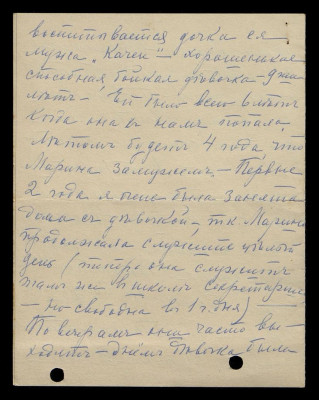 воспитывается дочка ея
мужа "Качеи" – хорошенькая
способная, бойкая дѣвочка – 9ти
лѣтъ – Ей было всего 6 лѣтъ
когда она къ намъ попала.
Лѣтомъ будетъ 4 года что
Марина замужемъ – Первые
2 года я очень была занята
дома съ дѣвочкой, т.к. Марина
продолжала служить цѣлый
день (теперь она служитъ
тамъ же въ школѣ секретаршей
– но свободна въ 1 ч. дня)
По вечерамъ они часто вы-
ходятъ – днёмъ дѣвочка была